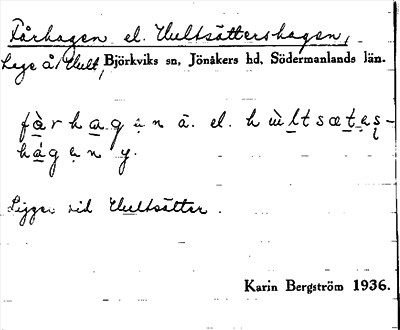 Fårhagen el. Hultsättershagen,
Lge å. Hult, Björkviks sn, Jönåkers hd, Södermanlands län.
fὰrhagęn ä. el. hὼltsætęṣ-
hágęn y.
Ligger vid Hultsätter.
Karin Bergström 1936.